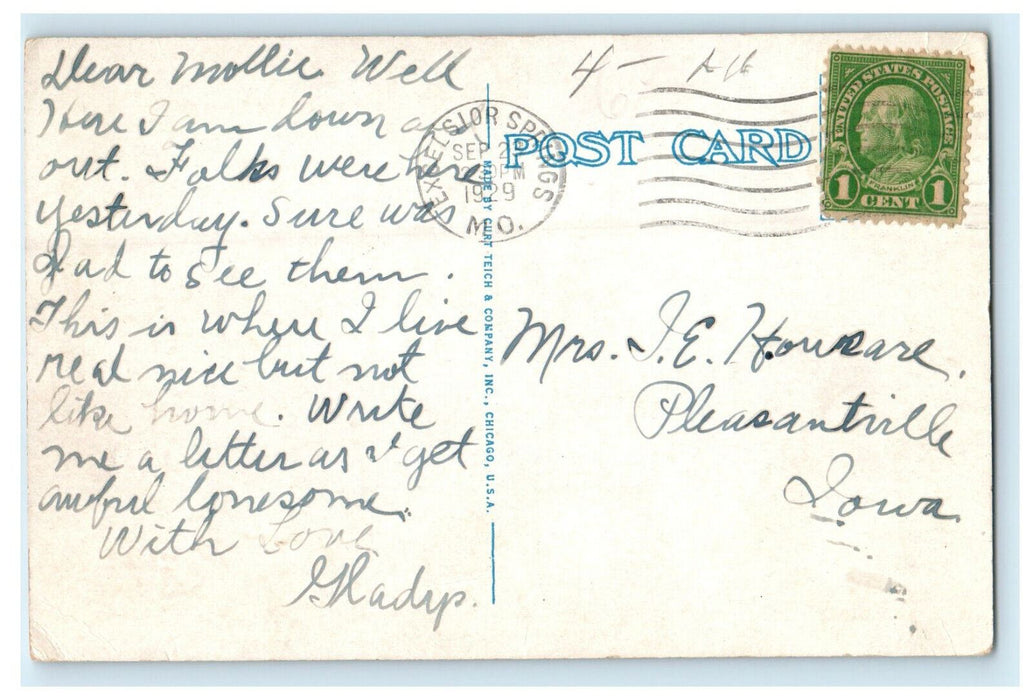 Dear Mollie. Well
Here I am down a
out. Folks were here
yesterday. Sure was
glad to see them.
This is where I live
real nice but not
like home. Write
me a letter as I get
awful lonesome.
With Love
Gladys.
4 -
EXCELSIOR SPRINGS
SEP 2
PM
1929
MO.
POST CARD
MADE BY CURT TEICH & COMPANY, INC., CHICAGO, U.S.A.
UNITED STATES POSTAGE
FRANKLIN
1 CENT 1
Mrs. I. E. Howsare,
Pleasantville
Iowa.